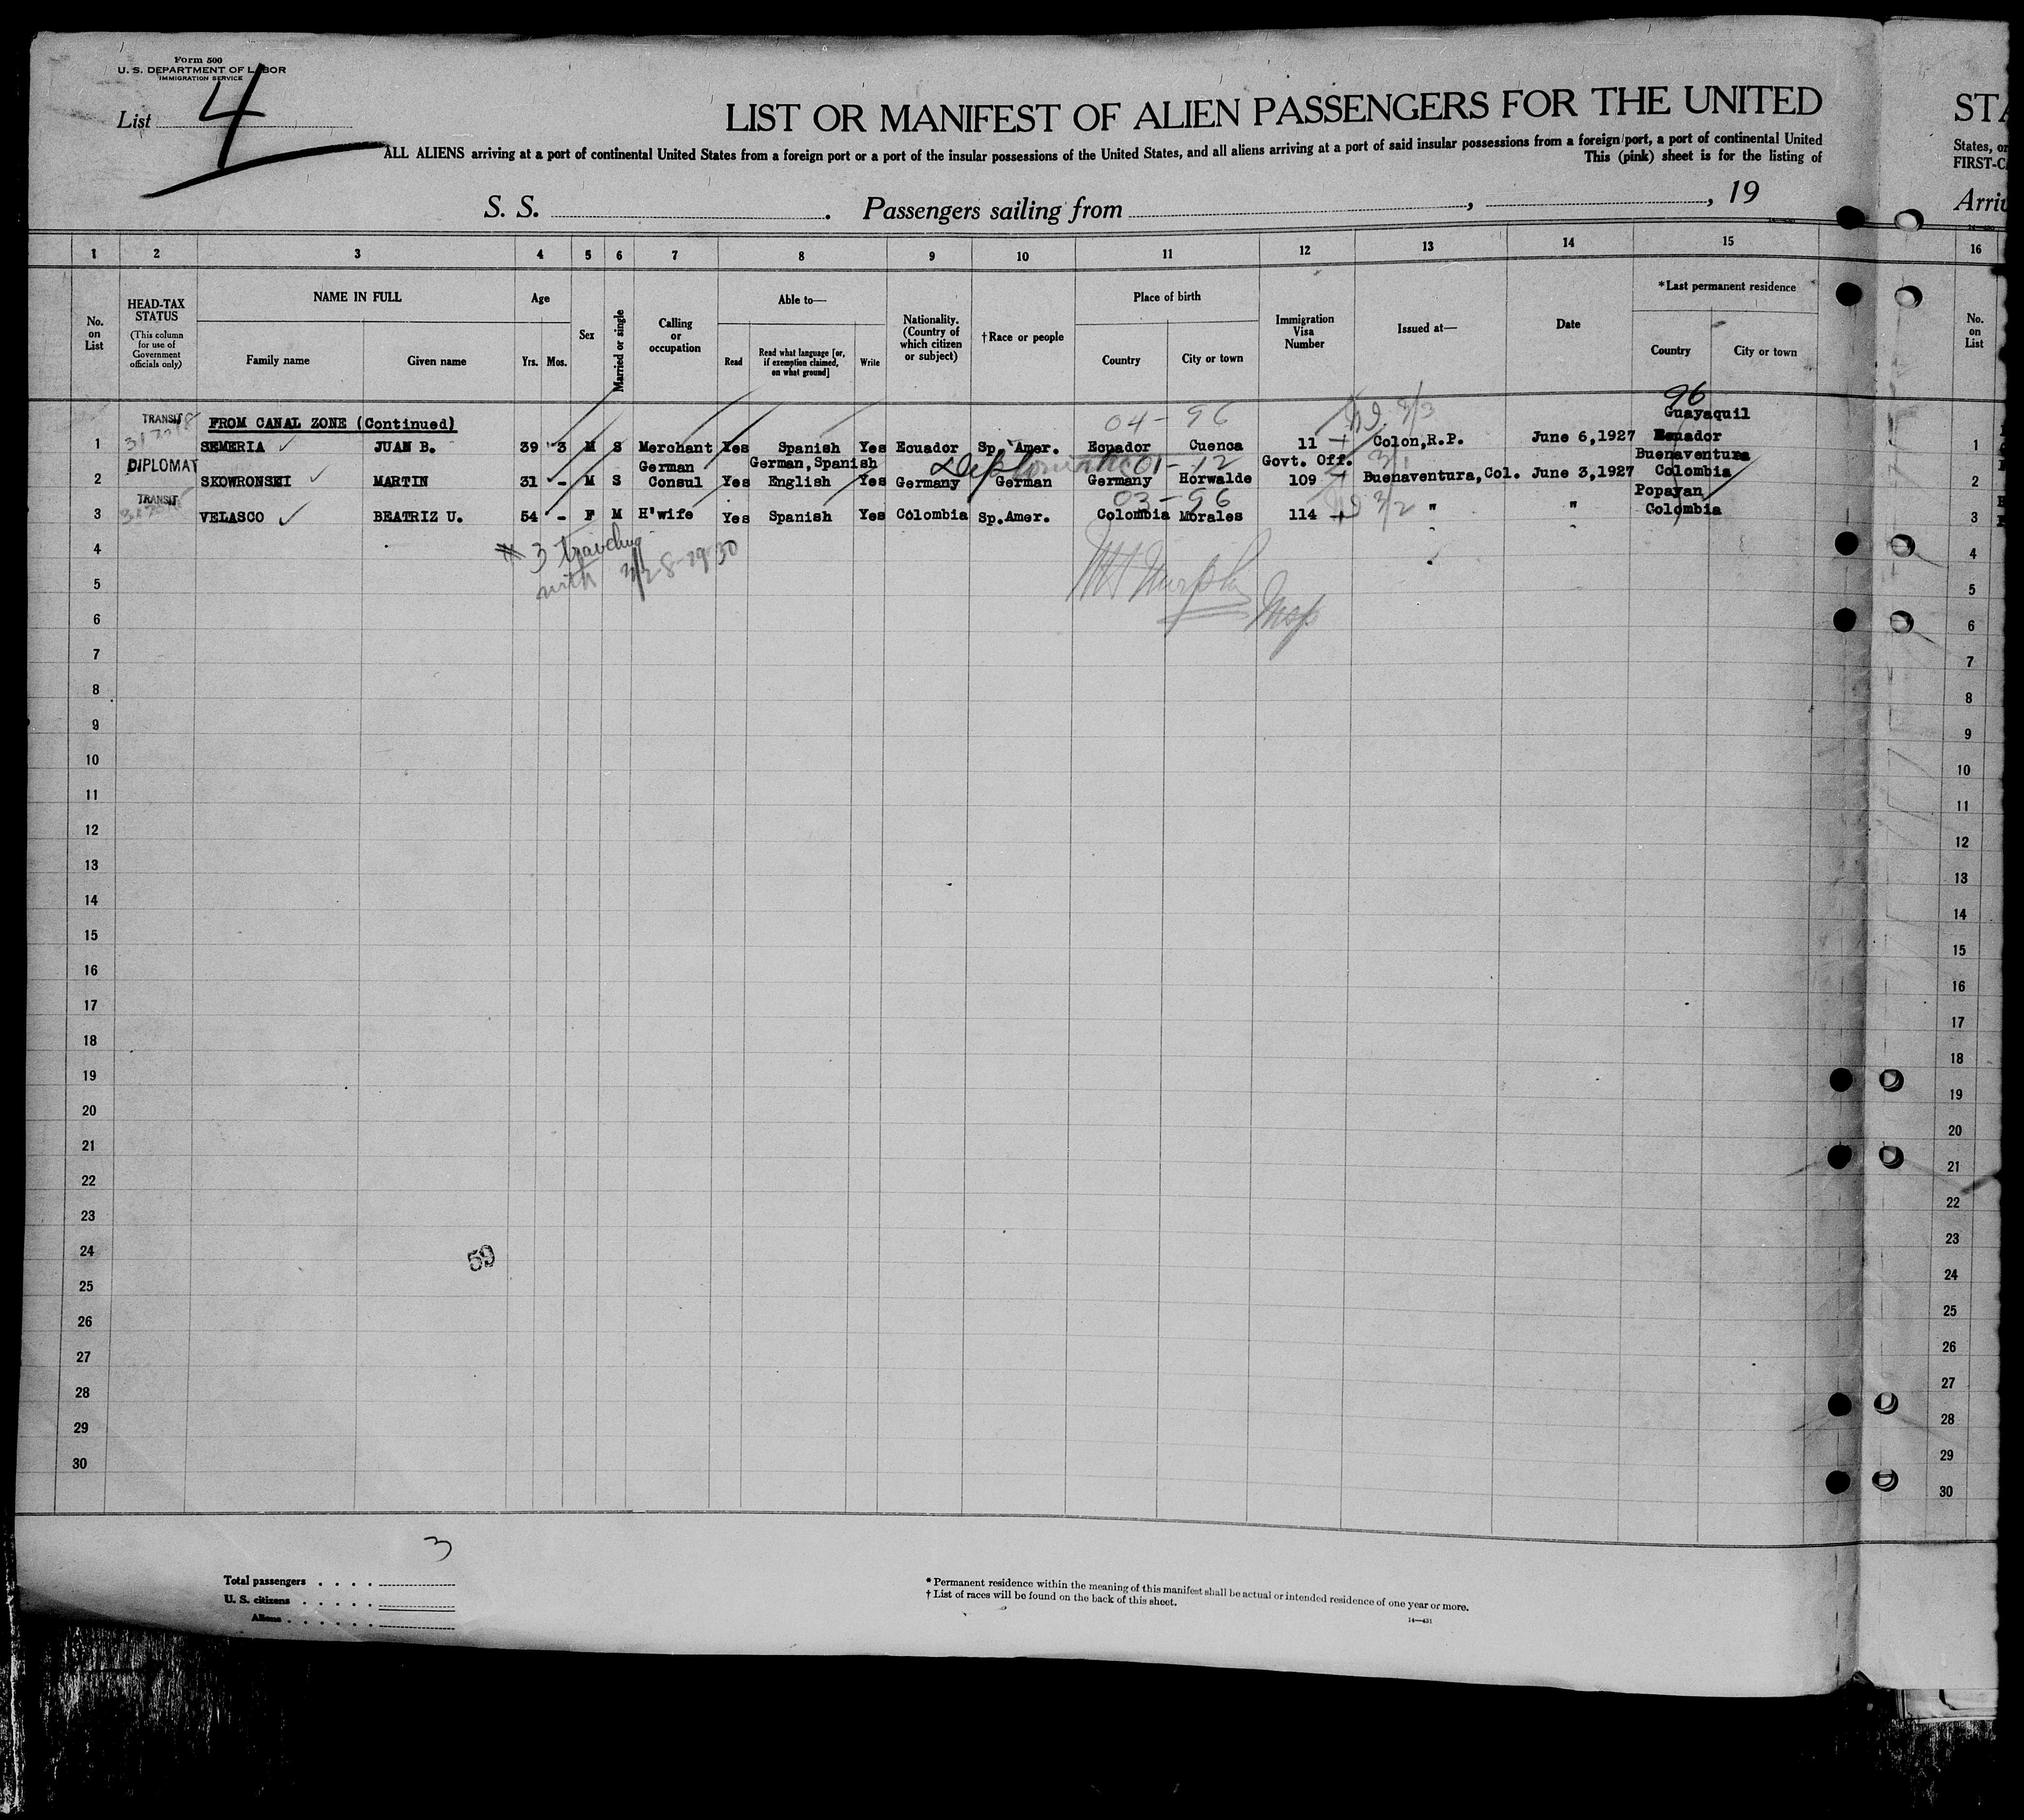 Form 500
U. S. DEPARTMENT OF LABOR
IMMIGRATION SERVICE
List 4
LIST OR MANIFEST OF ALIEN PASSENGERS FOR THE UNITED
STA
ALL ALIENS arriving at a port of continental United States from a foreign port or a port of the insular possessions of the United States, and all aliens arriving at a port of said insular possessions from a foreign port, a port of continental United
States, or
This (pink) sheet is for the listing of
FIRST-C
S. S. . Passengers sailing from , , 19
Arriv
1 2 3 4 5 6 7 8 9 10 11 12 13 14 15 16
No. on List
HEAD-TAX STATUS
(This column for use of Government officials only)
NAME IN FULL
Family name Given name
Age
Yrs. Mos.
Sex
Married or single
Calling or occupation
Able to—
Read Read what language [or, if exemption claimed, on what ground] Write
Nationality. (Country of which citizen or subject)
†Race or people
Place of birth
Country City or town
Immigration Visa Number
Issued at—
Date
*Last permanent residence
Country City or town
No. on List
96
TRANSIT FROM CANAL ZONE (Continued) 04-96 Guayaquil
1 SEMERIA JUAN B. 39 3 M S Merchant Yes Spanish Yes Ecuador Sp. Amer. Ecuador Cuenca 11 Colon,R.P. June 6,1927 Ecuador 1
DIPLOMAT German German,Spanish 01-12 Govt. Off. 3/1 Buenaventura
2 SKOWRONSKI MARTIN 31 - M S Consul Yes English Yes Germany German Germany Horwalde 109 Buenaventura,Col. June 3,1927 Colombia 2
TRANSIT 03-96 3/2 Popayan
3 VELASCO BEATRIZ U. 54 - F M H'wife Yes Spanish Yes Colombia Sp.Amer. Colombia Morales 114 " " Colombia 3
# 3 traveling
with
4 4
5 5
6 6
7 7
8 8
9 9
10 10
11 11
12 12
13 13
14 14
15 15
16 16
17 17
18 18
19 19
20 20
21 21
22 22
23 23
24 24
59
25 25
26 26
27 27
28 28
29 29
30 30
3
Total passengers
U. S. citizens
Aliens
* Permanent residence within the meaning of this manifest shall be actual or intended residence of one year or more.
† List of races will be found on the back of this sheet.
14—431